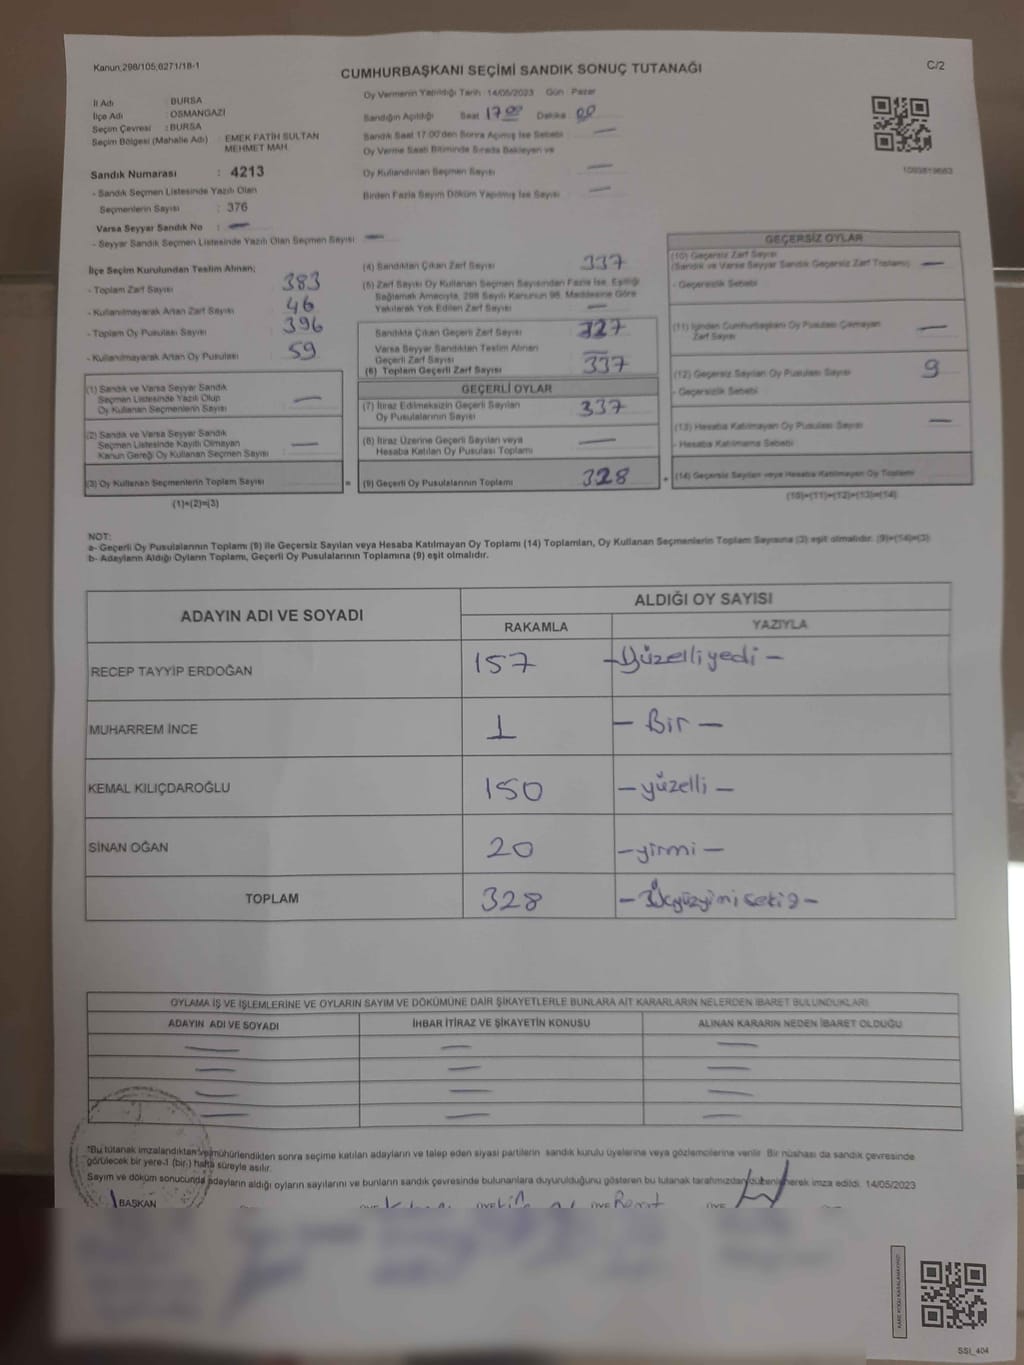 Kanun,298/105,6271/18-1
C/2
CUMHURBAŞKANI SEÇİMİ SANDIK SONUÇ TUTANAĞI
İl Adı : BURSA
İlçe Adı : OSMANGAZİ
Seçim Çevresi : BURSA
Seçim Bölgesi (Mahalle Adı) : EMEK FATİH SULTAN
MEHMET MAH.
Sandık Numarası : 4213
- Sandık Seçmen Listesinde Yazılı Olan
Seçmenlerin Sayısı : 376
Varsa Seyyar Sandık No : —
- Seyyar Sandık Seçmen Listesinde Yazılı Olan Seçmen Sayısı : —
Oy Vermenin Yapıldığı Tarih : 14/05/2023 Gün : Pazar
Sandığın Açıldığı Saat 17 00 Dakika : 00
Sandık Saat 17:00'den Sonra Açılmış İse Sebebi : —
Oy Verme Saati Bitiminde Sırada Bekleyen ve
Oy Kullandırılan Seçmen Sayısı —
Birden Fazla Sayım Döküm Yapılmış İse Sayısı : —
İlçe Seçim Kurulundan Teslim Alınan;
- Toplam Zarf Sayısı : 383
- Kullanılmayarak Artan Zarf Sayısı : 46
- Toplam Oy Pusulası Sayısı : 396
- Kullanılmayarak Artan Oy Pusulası : 59
(1) Sandık ve Varsa Seyyar Sandık
Seçmen Listesinde Yazılı Olup
Oy Kullanan Seçmenlerin Sayısı : —
(2) Sandık ve Varsa Seyyar Sandık
Seçmen Listesinde Kayıtlı Olmayan
Kanun Gereği Oy Kullanan Seçmen Sayısı : —
(3) Oy Kullanan Seçmenlerin Toplam Sayısı :
(1)+(2)=(3)
(4) Sandıktan Çıkan Zarf Sayısı : 337
(5) Zarf Sayısı Oy Kullanan Seçmen Sayısından Fazla İse, Eşitliği
Sağlamak Amacıyla, 298 Sayılı Kanunun 98. Maddesine Göre
Yakılarak Yok Edilen Zarf Sayısı : —
Sandıkta Çıkan Geçerli Zarf Sayısı :
Varsa Seyyar Sandıktan Teslim Alınan
Geçerli Zarf Sayısı : —
(6) Toplam Geçerli Zarf Sayısı : 337
GEÇERLİ OYLAR
(7) İtiraz Edilmeksizin Geçerli Sayılan
Oy Pusulalarının Sayısı : 337
(8) İtiraz Üzerine Geçerli Sayılan veya
Hesaba Katılan Oy Pusulası Toplamı : —
= (9) Geçerli Oy Pusulalarının Toplamı : 328
GEÇERSİZ OYLAR
(10) Geçersiz Zarf Sayısı
(Sandık ve Varsa Seyyar Sandık Geçersiz Zarf Toplamı) : —
- Geçersizlik Sebebi
(11) İçinden Cumhurbaşkanı Oy Pusulası Çıkmayan
Zarf Sayısı : —
(12) Geçersiz Sayılan Oy Pusulası Sayısı : 9
- Geçersizlik Sebebi
(13) Hesaba Katılmayan Oy Pusulası Sayısı : —
- Hesaba Katılmama Sebebi
+ (14) Geçersiz Sayılan veya Hesaba Katılmayan Oy Toplamı :
(10)+(11)+(12)+(13)=(14)
NOT:
a- Geçerli Oy Pusulalarının Toplamı (9) ile Geçersiz Sayılan veya Hesaba Katılmayan Oy Toplamı (14) Toplamları, Oy Kullanan Seçmenlerin Toplam Sayısına (3) eşit olmalıdır. (9)+(14)=(3)
b- Adayların Aldığı Oyların Toplamı, Geçerli Oy Pusulalarının Toplamına (9) eşit olmalıdır.
ADAYIN ADI VE SOYADI ALDIĞI OY SAYISI
RAKAMLA YAZIYLA
RECEP TAYYİP ERDOĞAN 157 - Yüzelliyedi -
MUHARREM İNCE 1 - Bir -
KEMAL KILIÇDAROĞLU 150 - yüzelli -
SİNAN OĞAN 20 - yirmi -
TOPLAM 328
OYLAMA İŞ VE İŞLEMLERİNE VE OYLARIN SAYIM VE DÖKÜMÜNE DAİR ŞİKAYETLERLE BUNLARA AİT KARARLARIN NELERDEN İBARET BULUNDUKLARI
ADAYIN ADI VE SOYADI İHBAR İTİRAZ VE ŞİKAYETİN KONUSU ALINAN KARARIN NEDEN İBARET OLDUĞU
— — —
— — —
— — —
— — —
*Bu tutanak imzalandıktan ve mühürlendikten sonra seçime katılan adayların ve talep eden siyasi partilerin sandık kurulu üyelerine veya gözlemcilerine verilir. Bir nüshası da sandık çevresinde
görülecek bir yere 1 (bir) hafta süreyle asılır.
Sayım ve döküm sonucunda adayların aldığı oyların sayılarını ve bunların sandık çevresinde bulunanlara duyurulduğunu gösteren bu tutanak tarafımızdan düzenlenerek imza edildi. 14/05/2023
BAŞKAN ÜYE ÜYE ÜYE ÜYE
KARE KODU KARALAMAYINIZ!
SSİ_404